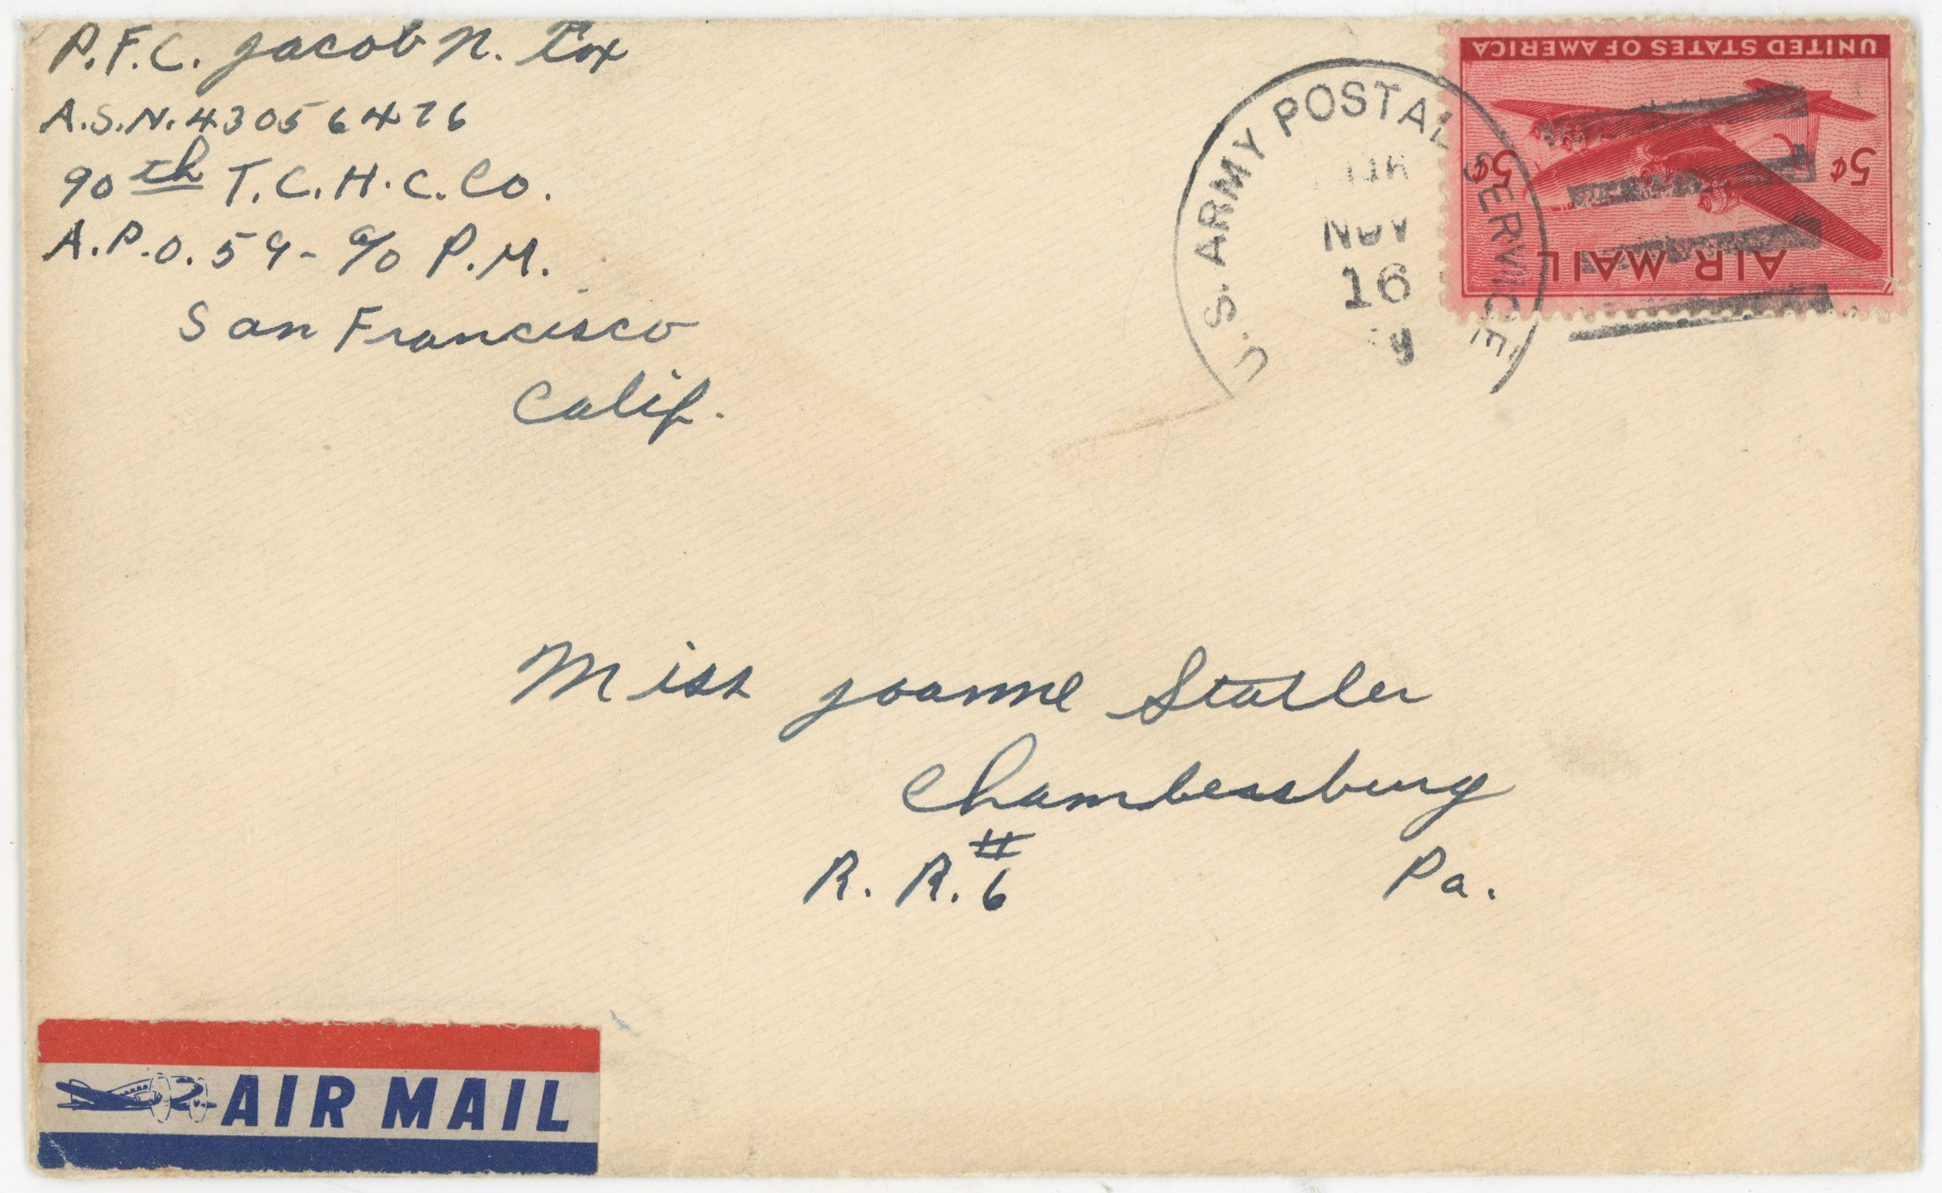 P.F.C. Jacob N. Cox
A.S.N. 43056476
90th T.C.H.C. Co.
A.P.O. 59 - c/o P.M.
San Francisco
Calif.
U.S. ARMY POSTAL SERVICE
NOV
16
UNITED STATES OF AMERICA
5¢ 5¢
AIR MAIL
Miss Joanne Statler
Chambersburg
R. R. #6 Pa.
AIR MAIL